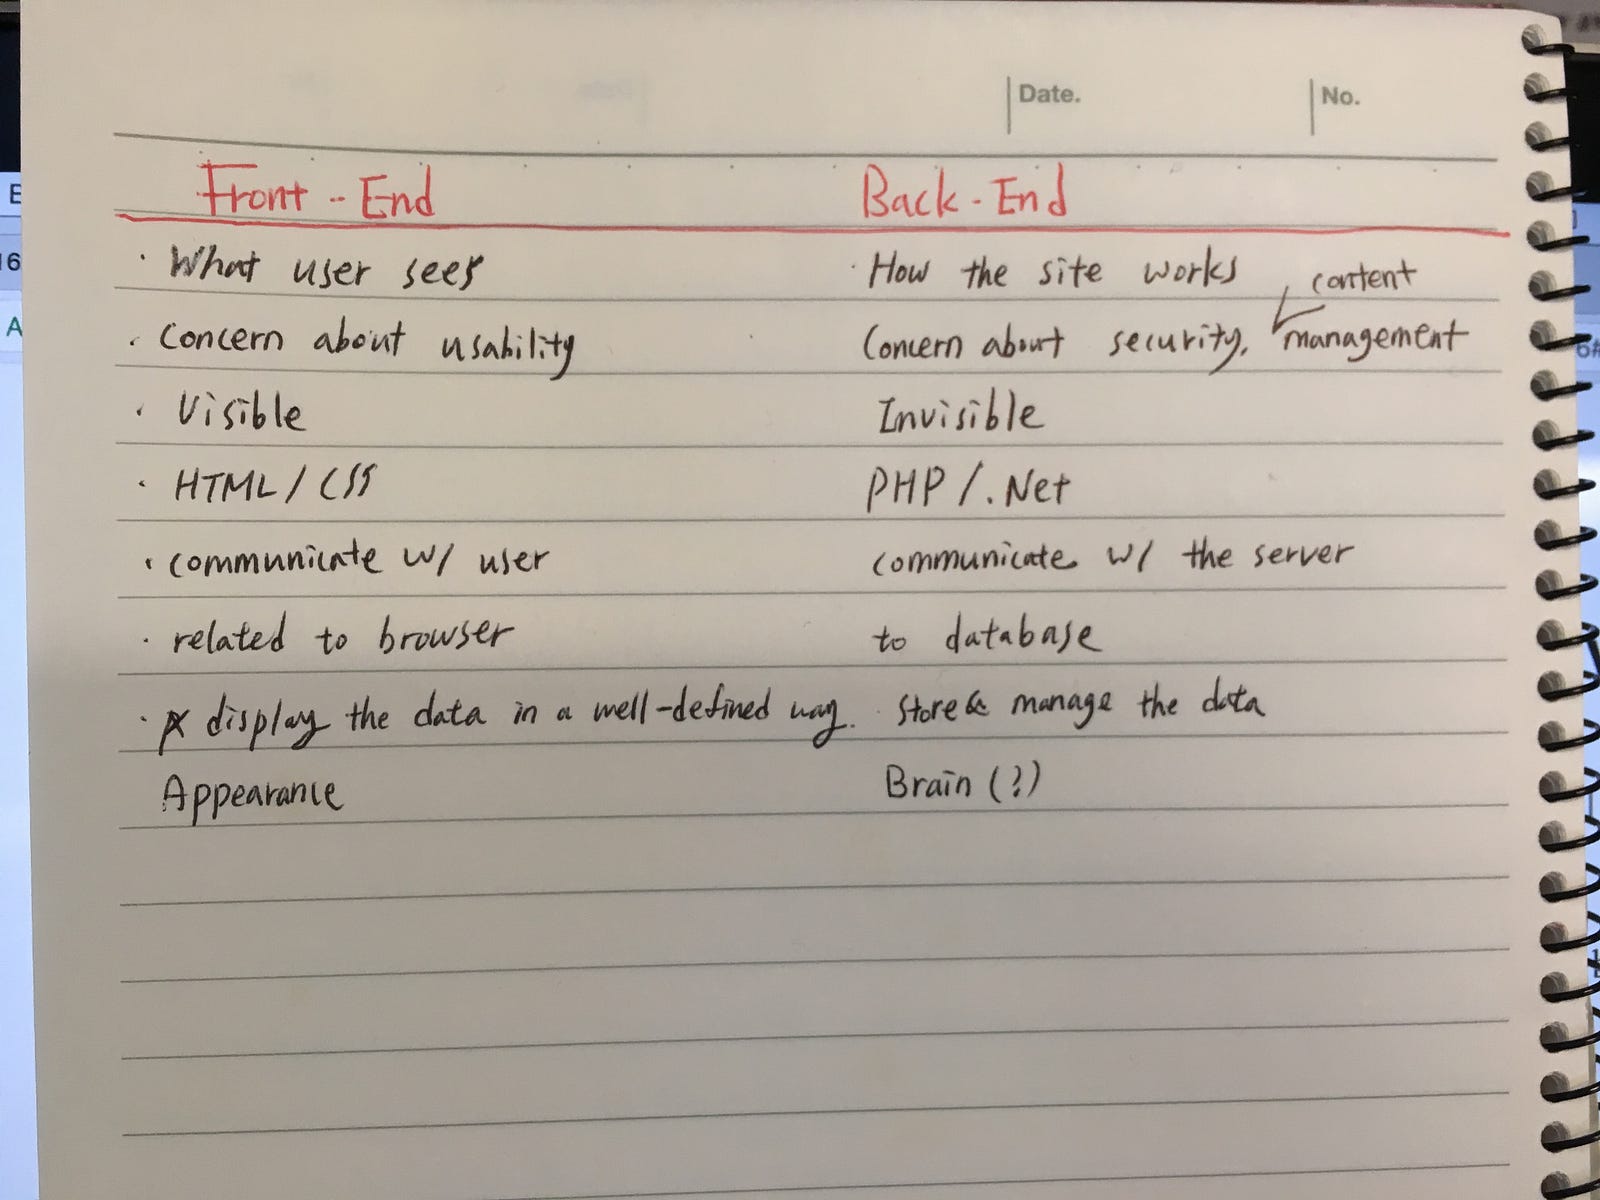 Date. No.
Front - End Back - End
· What user sees · How the site works
· Concern about usability Concern about security, content management
· Visible Invisible
· HTML / CSS PHP / .Net
· communicate w/ user communicate w/ the server
· related to browser to database
· display the data in a well-defined way. · Store & manage the data
Appearance Brain (?)